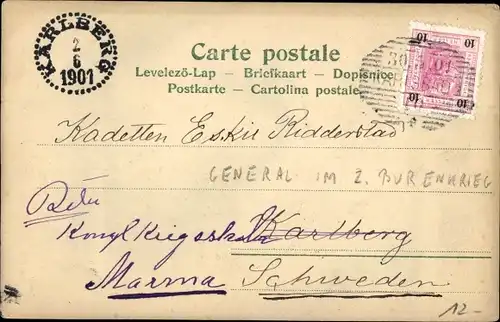 KARLBERG
2
6
1901
Carte postale
Levelező-Lap – Briefkaart – Dopisnice
Postkarte – Cartolina postale
10 10
10 10
Kadetten Eskil Ridderstad
GENERAL IM 2. BURENKRIEG
Kongl Krigsskolan
Karlberg
Marma Schweden
12-